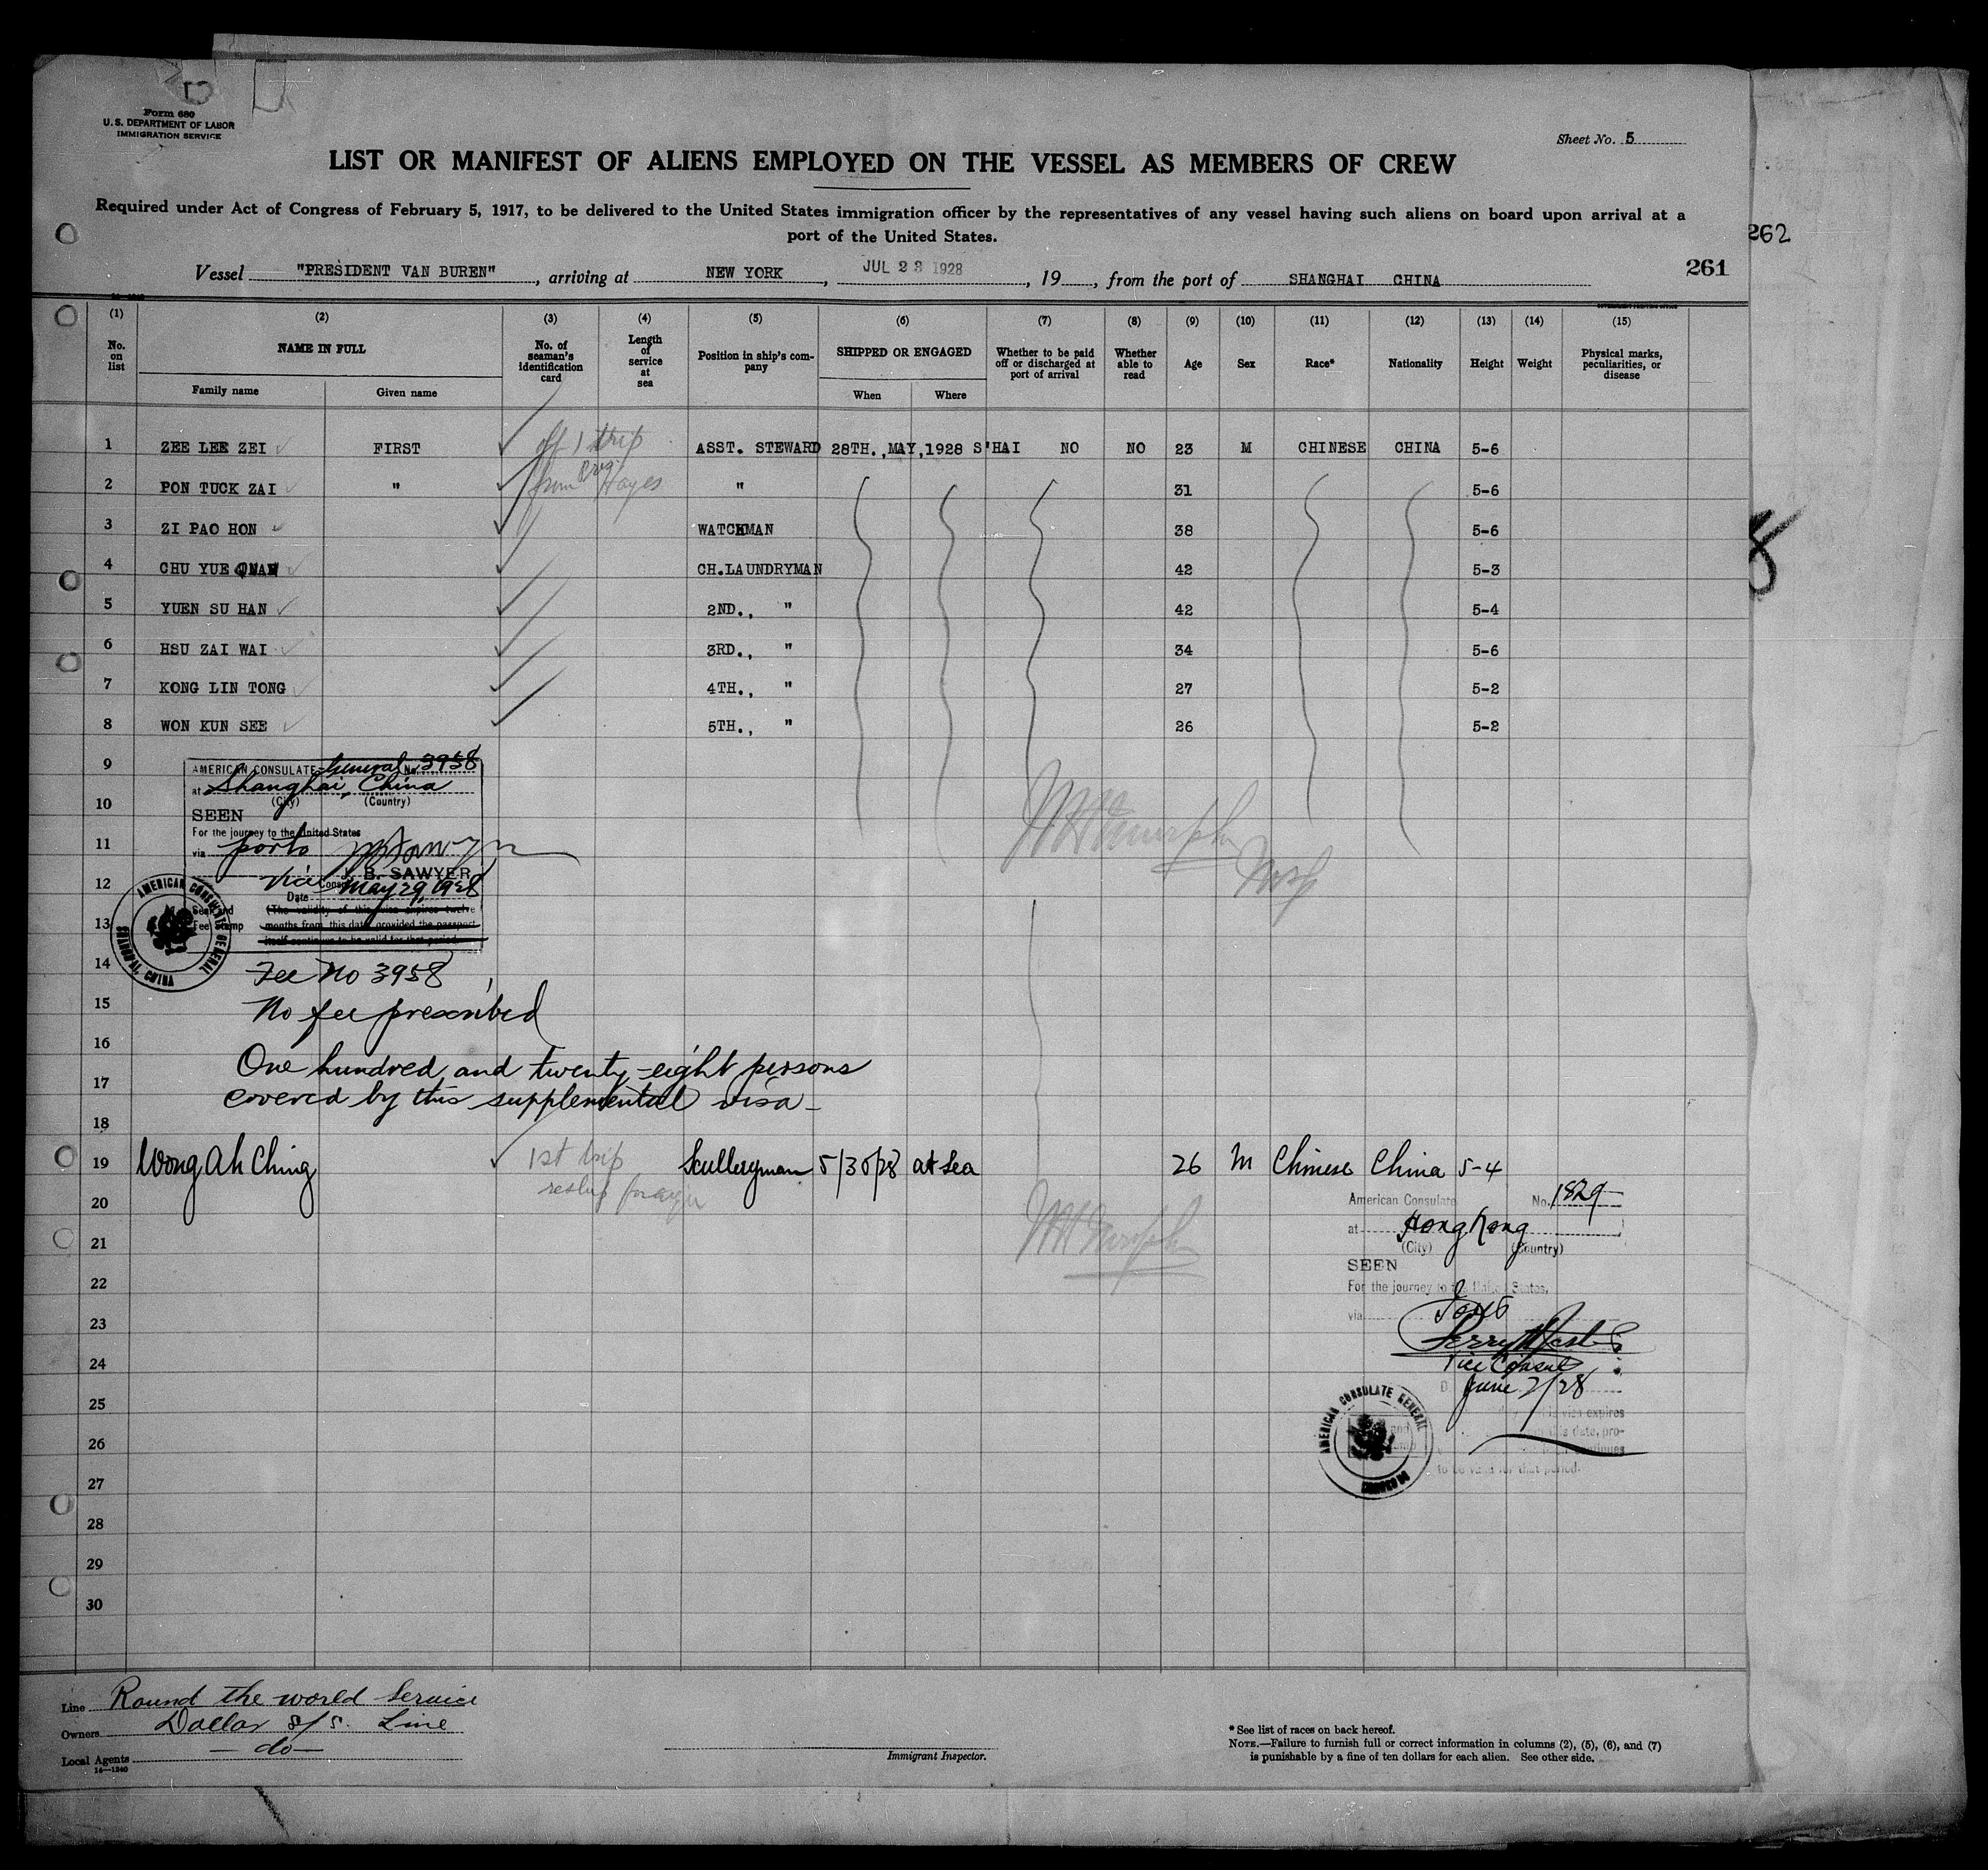 Form 680
U. S. DEPARTMENT OF LABOR
IMMIGRATION SERVICE
Sheet No. 5
LIST OR MANIFEST OF ALIENS EMPLOYED ON THE VESSEL AS MEMBERS OF CREW
Required under Act of Congress of February 5, 1917, to be delivered to the United States immigration officer by the representatives of any vessel having such aliens on board upon arrival at a
port of the United States.
262
261
Vessel "PRESIDENT VAN BUREN", arriving at NEW YORK, JUL 23 1928, 19, from the port of SHANGHAI CHINA
(1) (2) (3) (4) (5) (6) (7) (8) (9) (10) (11) (12) (13) (14) (15)
No. on list
NAME IN FULL
Family name Given name
No. of seaman's identification card
Length of service at sea
Position in ship's company
SHIPPED OR ENGAGED
When Where
Whether to be paid off or discharged at port of arrival
Whether able to read
Age
Sex
Race*
Nationality
Height
Weight
Physical marks, peculiarities, or disease
1 ZEE LEE ZEI FIRST off 1 trip ASST. STEWARD 28TH.,MAY,1928 S'HAI NO NO 23 M CHINESE CHINA 5-6
2 PON TUCK ZAI " from Pres Hayes " 31 5-6
3 ZI PAO HON WATCHMAN 38 5-6
4 CHU YUE QUAN CH.LAUNDRYMAN 42 5-3
5 YUEN SU HAN 2ND., " 42 5-4
6 HSU ZAI WAI 3RD., " 34 5-6
7 KONG LIN TONG 4TH., " 27 5-2
8 WON KUN SEE 5TH., " 26 5-2
9
10
11
12
13
14
15
16
17
18
AMERICAN CONSULATE General No. 3958
at Shanghai, China
(City) (Country)
SEEN
For the journey to the United States
via ports
B. SAWYER
Vice Consul
Date May 29, 1928
Seal and Fee Stamp
(The validity of this visa expires twelve
months from this date provided the passport
itself continues to be valid for that period.
AMERICAN CONSULATE GENERAL
SHANGHAI, CHINA
Fee No 3958
No fee prescribed
One hundred and twenty-eight persons
covered by this supplemental visa
19 Wong Ah Ching 1st trip Sculleryman 5/30/28 at sea 26 M Chinese China 5-4
20
21
22
23
24
25
26
27
28
29
30
American Consulate No. 1829
at Hong Kong
(City) (Country)
SEEN
For the journey to the United States,
via Ports
Vice Consul
June 2/28
visa expires
this date, pro-
continues
to be valid for that period.
AMERICAN CONSULATE GENERAL
HONGKONG
Line Round the world Service
Owners Dollar S/S. Line
Local Agents — do —
14—1240
Immigrant Inspector.
* See list of races on back hereof.
NOTE.—Failure to furnish full or correct information in columns (2), (5), (6), and (7)
is punishable by a fine of ten dollars for each alien. See other side.